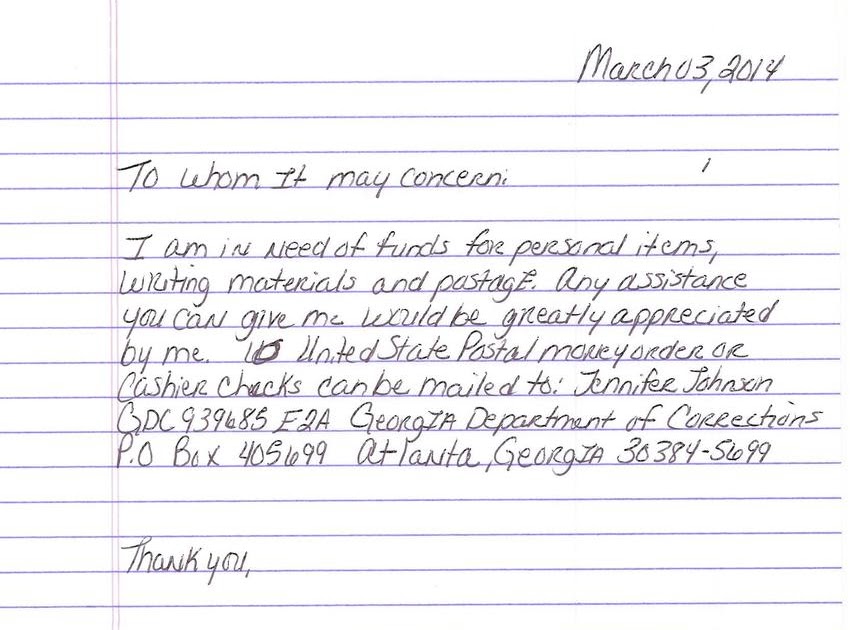 March 03, 2014
To whom It may concern:
I am in need of funds for personal items,
writing materials and postage. Any assistance
you can give me would be greatly appreciated
by me. United State Postal money order or
Cashier Checks can be mailed to: Jennifer Johnson
GDC 939685 E2A Georgia Department of Corrections
P.O Box 405699 Atlanta, Georgia 30384-5699
Thank you,